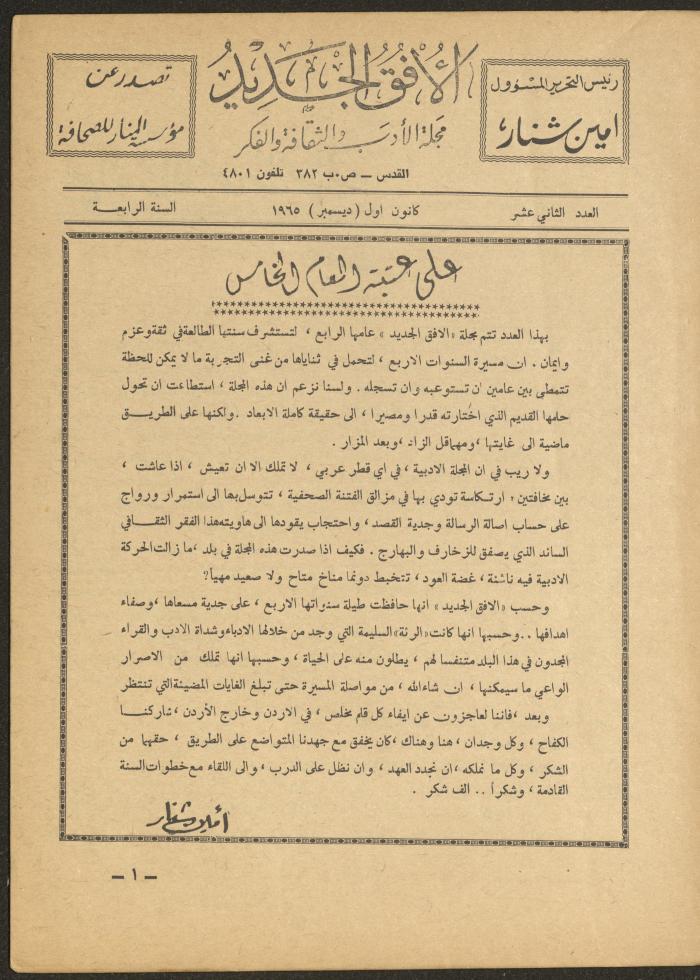 رئيس التحرير المسؤول
امين شنار
الأفق الجديد
مجلة الأدب والثقافة والفكر
تصدر عن
مؤسسة المنار للصحافة
القدس – ص.ب ٣٨٢ تلفون ٤٨٠١
العدد الثاني عشر
كانون اول (ديسمبر) ١٩٦٥
السنة الرابعة
على عتبة العام الخامس
بهذا العدد تتم مجلة «الافق الجديد» عامها الرابع ، لتستشرف سنتها الطالعة في ثقة وعزم
وايمان . ان مسيرة السنوات الاربع ، لتحمل في ثناياها من غنى التجربة ما لا يمكن للحظة
تتمطى بين عامين ان تستوعبه وان تسجله . ولسنا نزعم ان هذه المجلة ، استطاعت ان تحول
حلمها القديم الذي اختارته قدرا ومصيرا ، الى حقيقة كاملة الابعاد .ولكنها على الطريق
ماضية الى غايتها ،ومهما قل الزاد ،وبعد المزار .
ولا ريب في ان المجلة الادبية ، في اي قطر عربي ، لا تملك الا ان تعيش ، اذا عاشت ،
بين مخافتين : ارتكاسة تودي بها في مزالق الفتنة الصحفية ، تتوسل بها الى استمرار ورواج
على حساب اصالة الرسالة وجدية القصد ، واحتجاب يقودها الى هاويته هذا الفقر الثقافي
السائد الذي يصفق للزخارف والبهارج . فكيف اذا صدرت هذه المجلة في بلد ،ما زالت الحركة
الادبية فيه ناشئة ، غضة العود ، تتخبط دونما مناخ متاح ولا صعيد مهيأ؟
وحسب «الافق الجديد» انها حافظت طيلة سنواتها الاربع ، على جدية مسعاها ،وصفاء
اهدافها . .وحسبها انها كانت «الرئة» السليمة التي وجد من خلالها الادباء وشداة الادب والقراء
المجدون في هذا البلد متنفسا لهم ، يطلون منه على الحياة ، وحسبها انها تملك من الاصرار
الواعي ما سيمكنها ، ان شاء الله ، من مواصلة المسيرة حتى تبلغ الغايات المضيئة التي تنتظر
وبعد ،فاننا لعاجزون عن ايفاء كل قلم مخلص ، في الاردن وخارج الأردن ،شاركنا
الكفاح ، وكل وجدان ، هنا وهناك ،كان يخفق مع جهدنا المتواضع على الطريق ، حقهما من
الشكر ، وكل ما نملكه ،ان نجدد العهد ، وان نظل على الدرب ، والى اللقاء مع خطوات السنة
القادمة ، وشكرا . . الف شكر .
أمين شنار
– ١ –